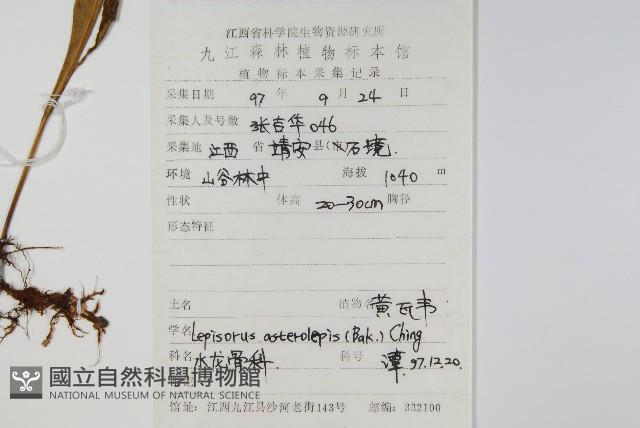 江西省科学院生物资源研究所
九江森林植物标本馆
植物标本采集记录
采集日期 97年 9月 24日
采集人及号数 张吉华 046
采集地 江西 省 靖安 县(市) 石境.
环境 山谷林中 海拔 1040 m
性状 体高 20—30cm 胸径
形态特征
土名 植物名 黄瓦韦
学名 Lepisorus asterolepis (Bak.) Ching
科名 水龙骨科. 科号 谭. 97.12.20.
國立自然科學博物館
NATIONAL MUSEUM OF NATURAL SCIENCE
馆址: 江西九江县沙河老街143号 邮编: 332100